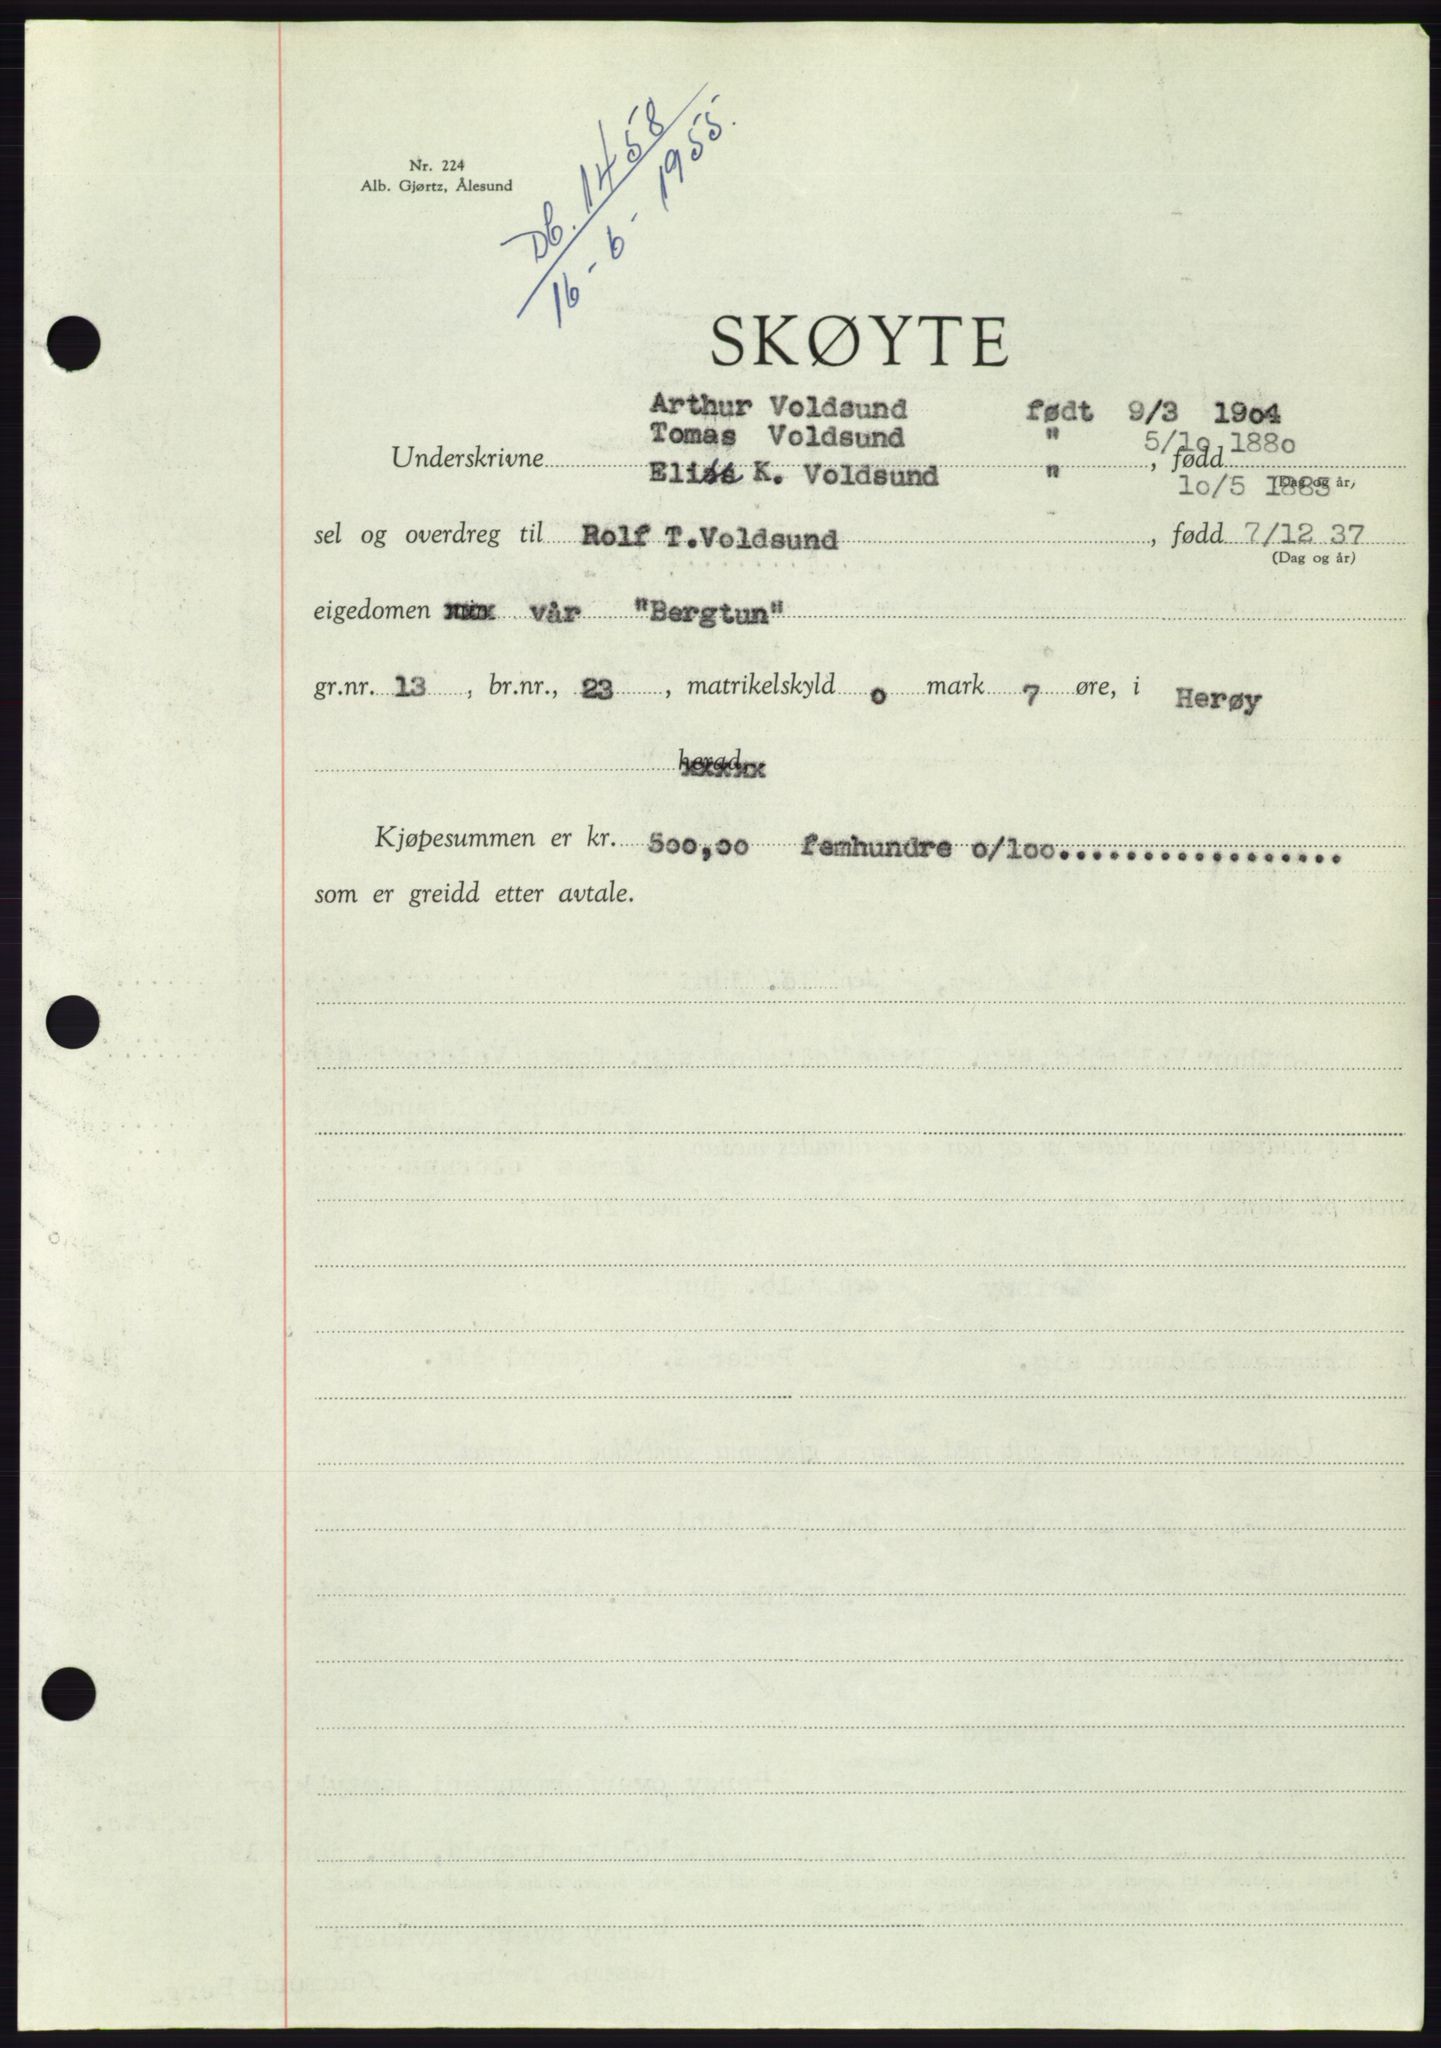 Db. 1458
16-6-1955.
Nr. 224
Alb. Gjørtz, Ålesund
SKØYTE
Arthur Voldsund født 9/3 1904
Tomas Voldsund " 5/10 1880
Underskrivne , fødd
K. Voldsund " 10/5 (Dag og år)
sel og overdreg til Rolf T. Voldsund , fødd 7/12 37
(Dag og år)
eigedomen vår "Bergtun"
gr.nr. 13 , br.nr., 23 , matrikelskyld 0 mark 7 øre, i Herøy
herad
Kjøpesummen er kr. 500,00 femhundre 0/100.................
som er greidd etter avtale.